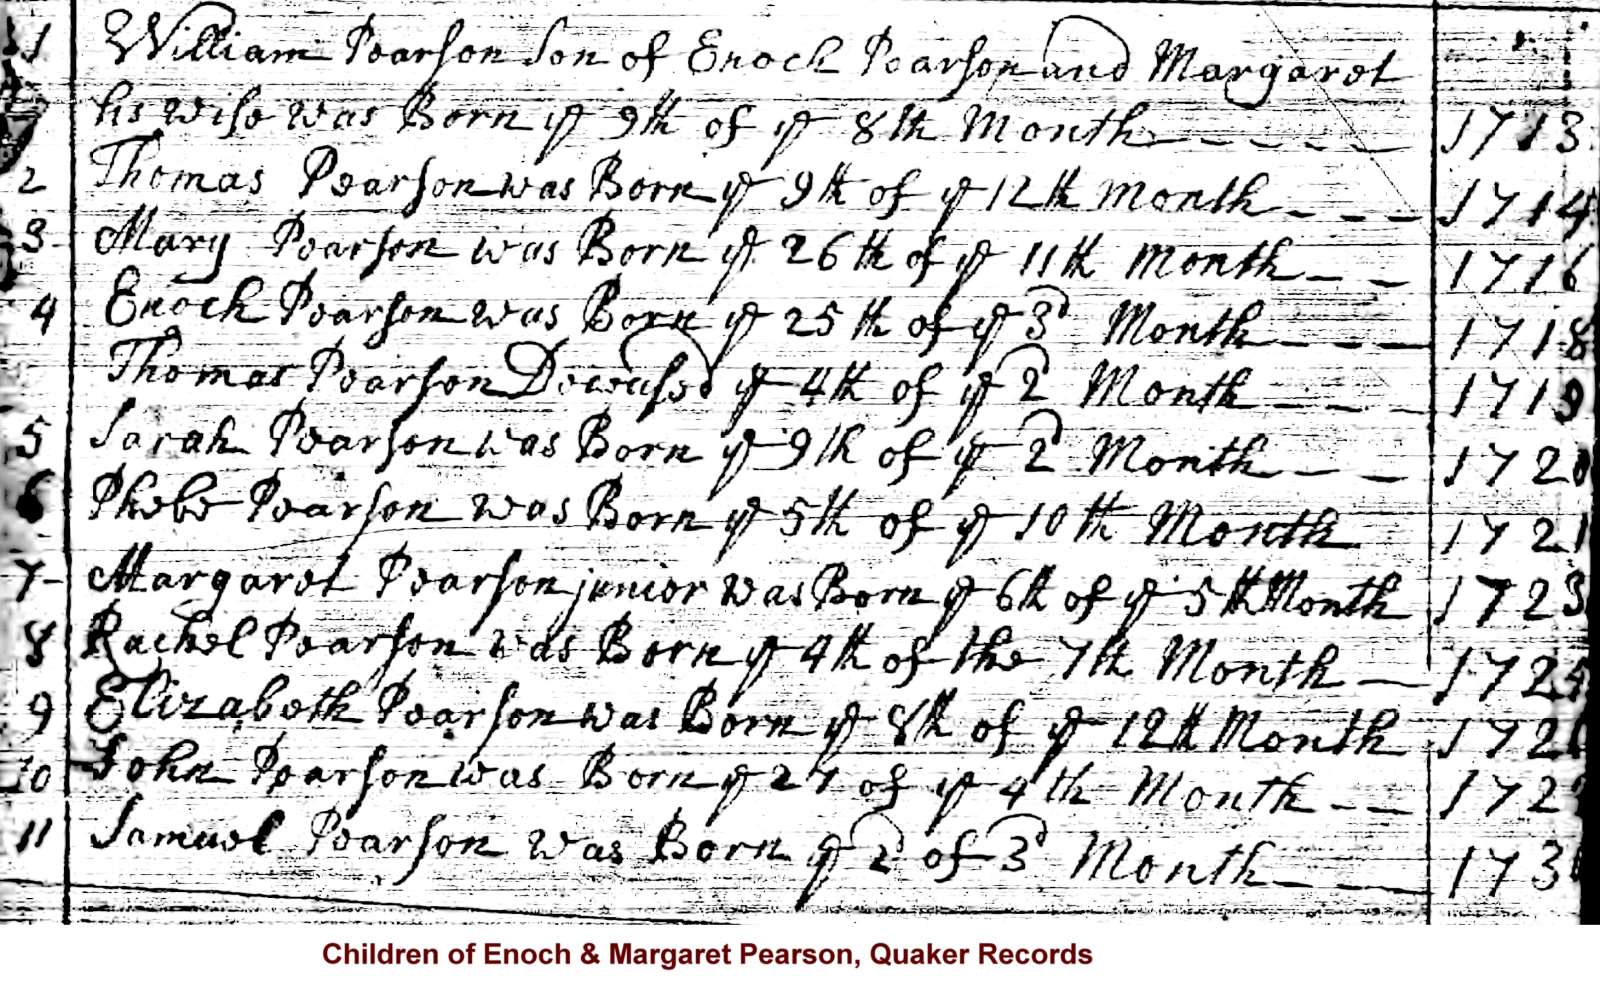 1 William Pearson Son of Enoch Pearson and Margaret
his wife was Born ye 9th of ye 8th Month 1713
2 Thomas Pearson was Born ye 9th of ye 12th Month 1714
3 Mary Pearson was Born ye 26th of ye 11th Month 1716
4 Enoch Pearson was Born ye 25th of ye 3d Month 1718
Thomas Pearson Deceased ye 4th of ye 2d Month 1719
5 Sarah Pearson was Born ye 9th of ye 2d Month 1720
6 Phebe Pearson was Born ye 5th of ye 10th Month 1721
7 Margaret Pearson junior was Born ye 6th of ye 5th Month 1723
8 Rachel Pearson was Born ye 4th of the 7th Month
9 Elizabeth Pearson was Born ye 8th of ye 12th Month
10 John Pearson was Born ye 27 of ye 4th Month
11 Samuel Pearson was Born ye 2d of 3d Month
Children of Enoch & Margaret Pearson, Quaker Records